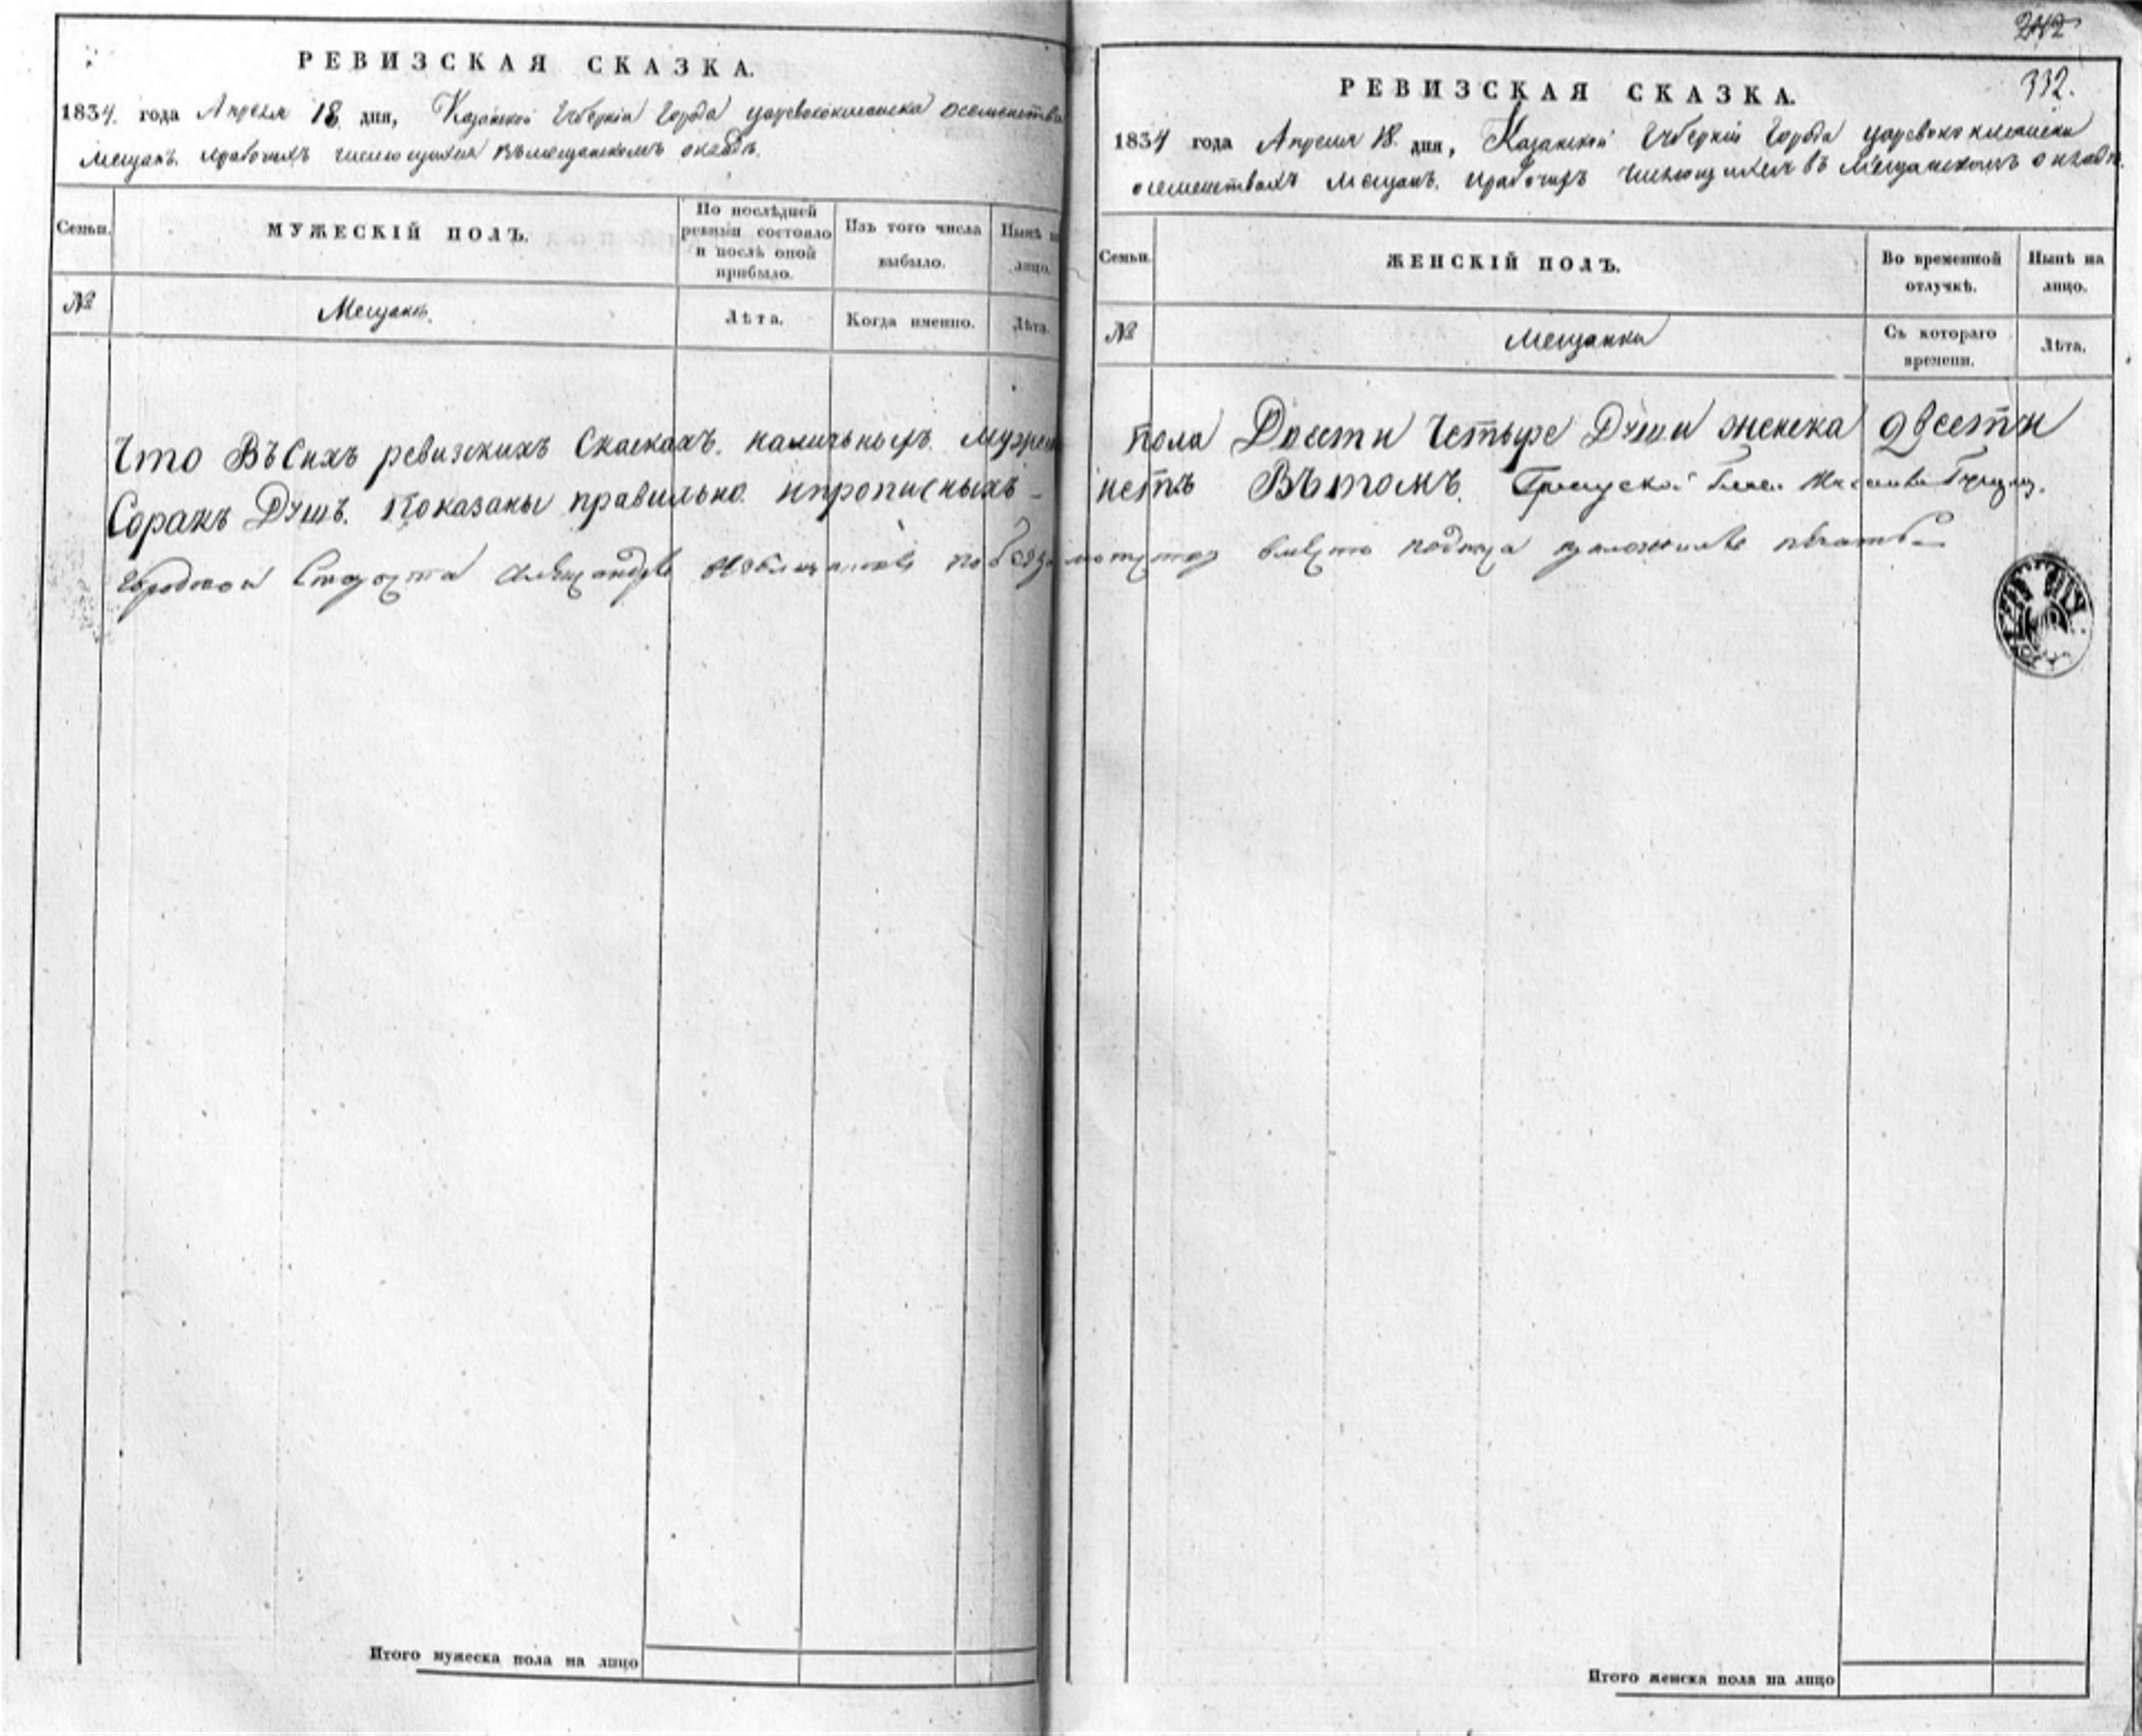 РЕВИЗСКАЯ СКАЗКА.
1834 года Апреля 18 дня, Казанской Губернiи Города царевококшайска осеменства
Мещанъ. ирабочихъ числющихся Въмещанскомъ окладѣ.
Семьи.
МУЖЕСКІЙ ПОЛЪ.
По послѣдней ревизіи состояло и послѣ оной прибыло.
Изъ того числа выбыло.
Нынѣ на лицо.
№
Мещанъ.
Лѣта.
Когда именно.
Лѣта.
Что Въсихъ ревизскихъ Сказкахъ. наличныхъ. Мужеска
Сорокъ Душъ. Показаны правильно. ипрописныхъ
Городовой Староста Александръ
Итого мужеска пола на лицо
242
332.
РЕВИЗСКАЯ СКАЗКА.
1834 года Апреля 18. дня, Казанской Губернiи Города царевококшайска
осеменствахъ Мещанъ. ирабочихъ числющихся въ Мещанскомъ окладѣ.
Семьи.
ЖЕНСКІЙ ПОЛЪ.
Во временной отлучкѣ.
Нынѣ на лицо.
№
Мещанки
Съ котораго времени.
Лѣта.
пола Двести Четыре Души женска двести
нетъ Вътомъ.
вместо печать
Итого женска пола на лицо